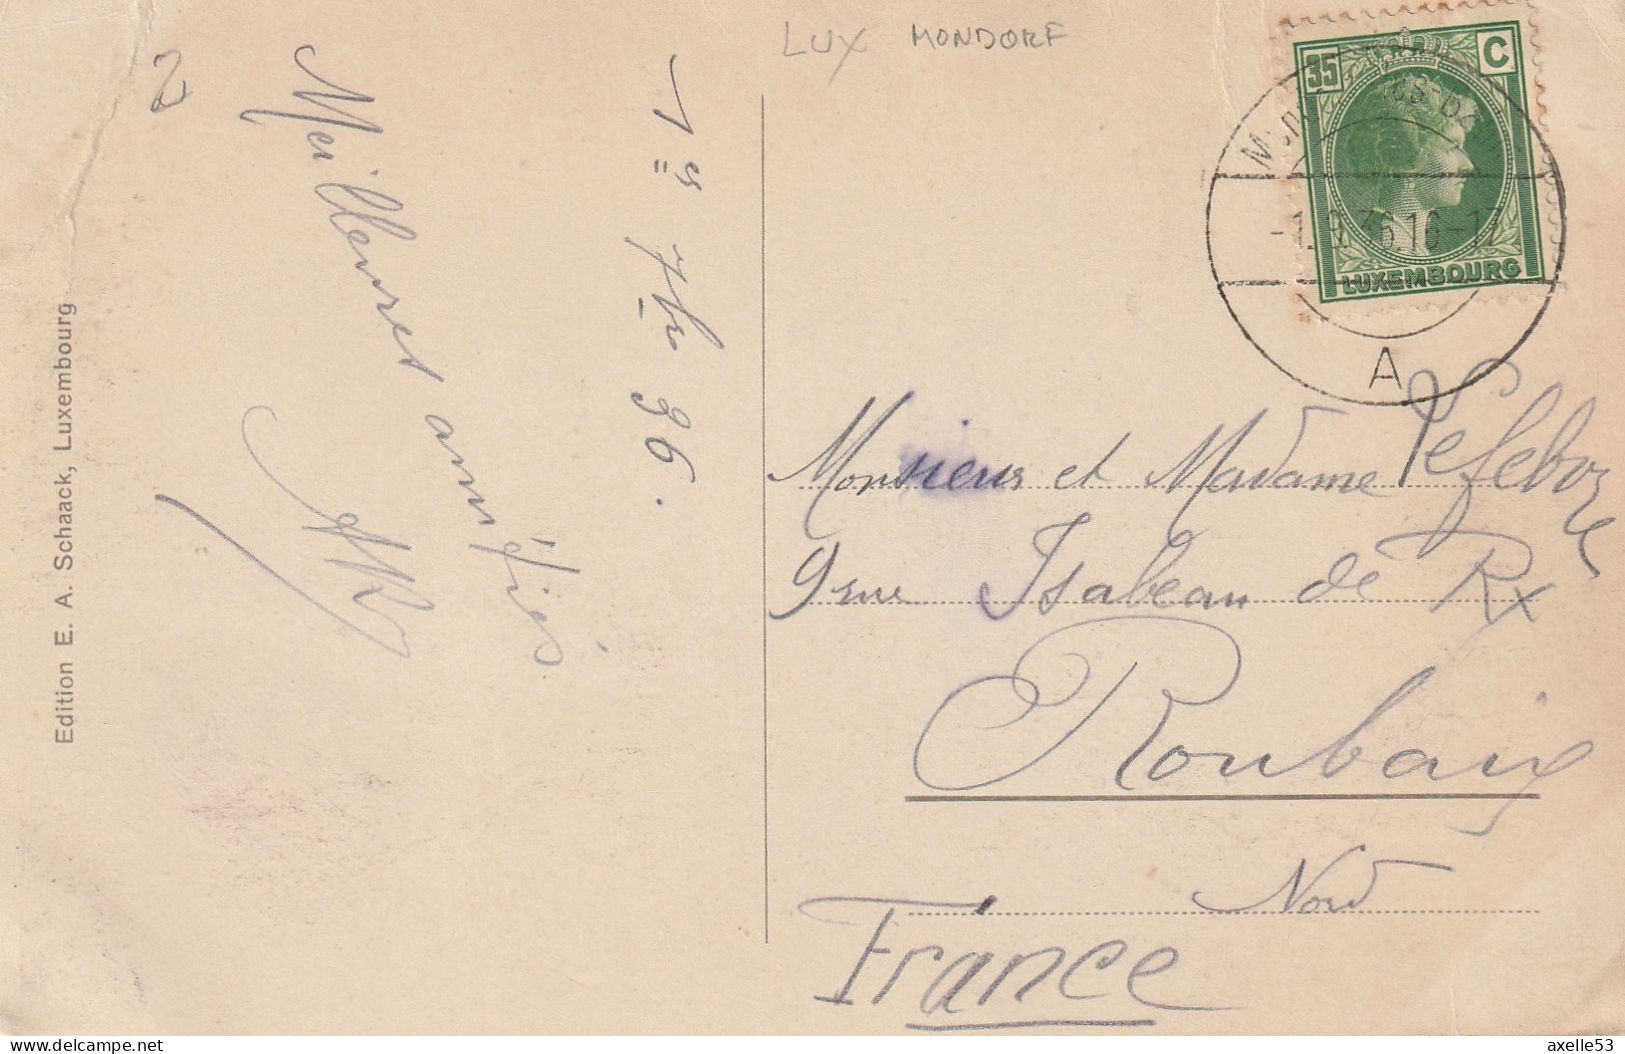 LUX MONDORF
2
1er 7bre 36.
Meilleures amitiés
35 C
LUXEMBOURG
-1.9.36.16-17
A
Monsieur et Madame Lefebvre
9 rue Isabeau de Rx
Roubaix
Nord
France
Edition E. A. Schaack, Luxembourg
axelle53